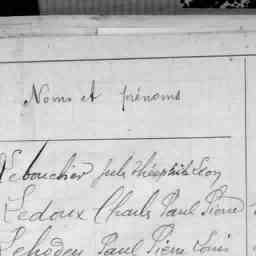 Noms et prénoms
Lebouchier Jules Théophile Léon
Ledoux Charles Paul Pierre
Lehodey Paul Pierre Louis